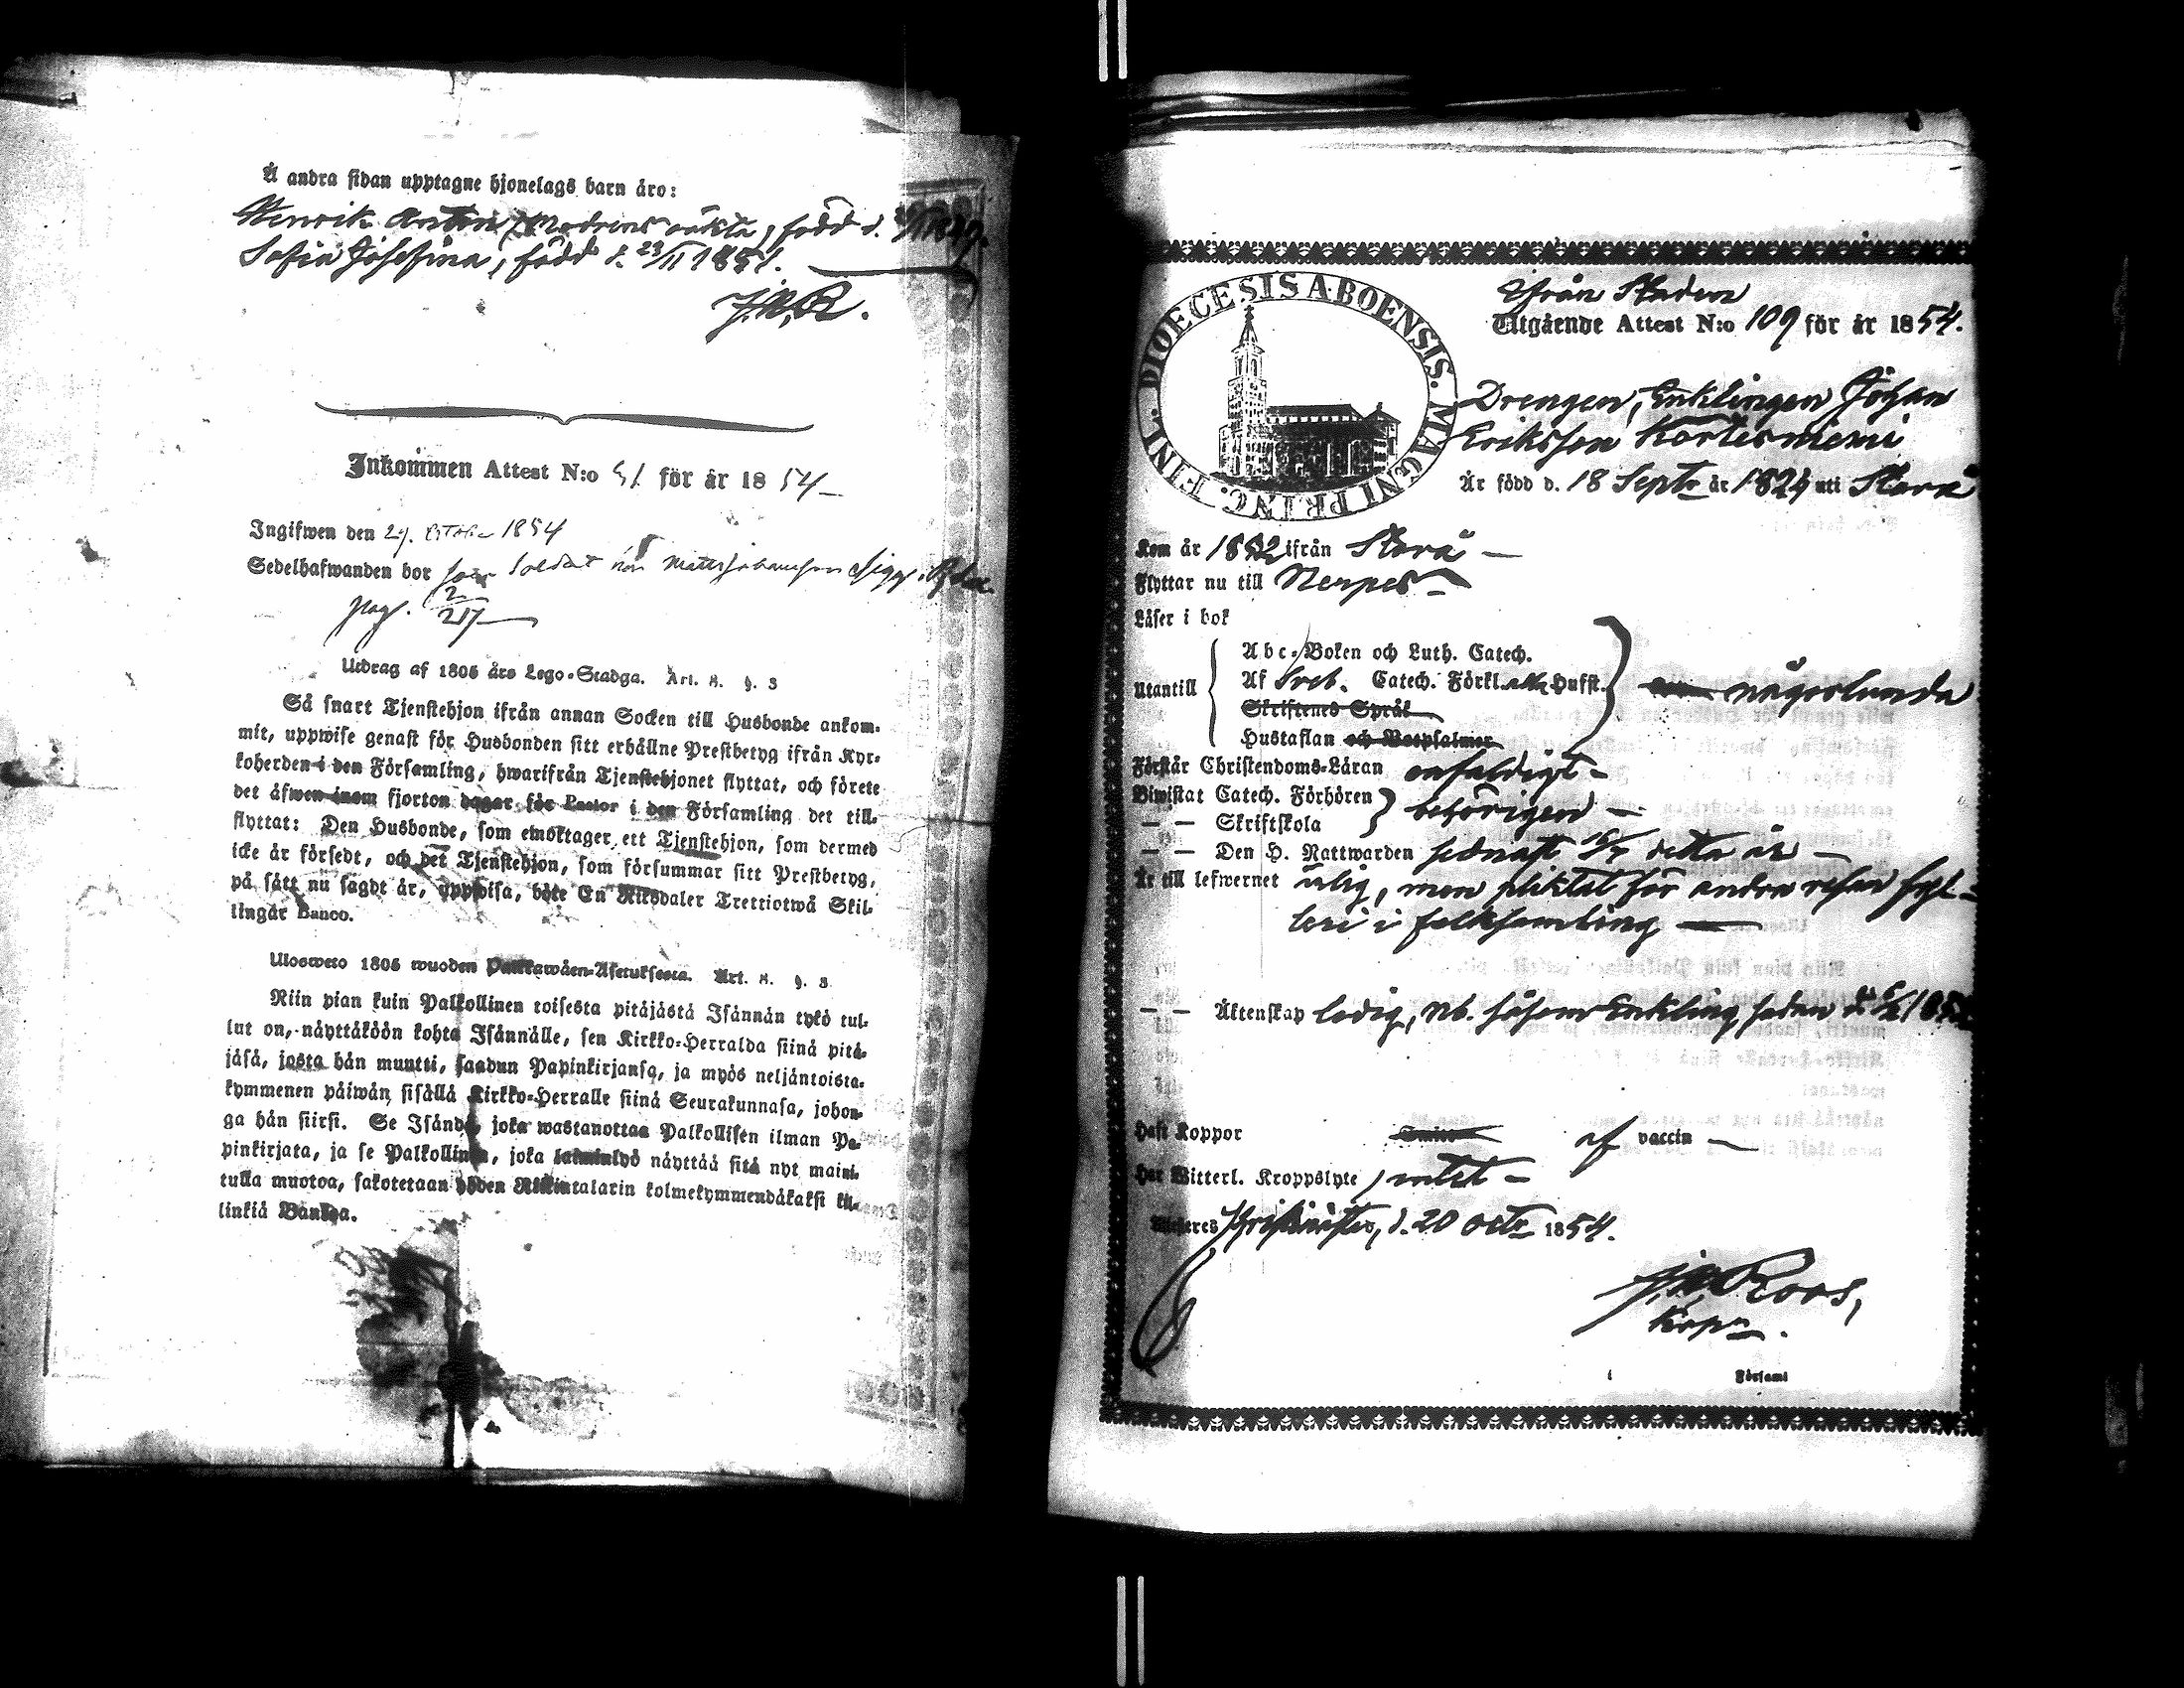 Å andra sidan upptagne hjonelags barn äro:
Henrik Anton, Modrens oäkta, född d.
Sofia Josefina, född d. 23/11 1851.
J.N.R.
Inkommen Attest N:o 51 för år 1854
Ingifwen den 29. October 1854
Sedelhafwanden bor hos Soldat Matts Johansson
pag. 2/217
Utdrag af 1805 års Lego-Stadga. Art. 8. §. 3
Så snart Tjenstehjon ifrån annan Socken till Husbonde ankom-
mit, uppwise genast för Husbonden sitt erhållne Prestbetyg ifrån Kyr-
koherden i den Församling, hwarifrån Tjenstehjonet flyttat, och förete
det äfwen inom fjorton dagar för Pastor i den Församling det till-
flyttat: Den Husbonde, som emottager ett Tjenstehjon, som dermed
icke är försedt, och det Tjenstehjon, som försummar sitt Prestbetyg,
på sätt nu sagdt är, uppwisa, böte En Riksdaler Trettiotwå Skil-
lingar Banco.
Ulosweto 1805 wuoden Palkkawäen-Asetuksesta. Art. 8. §. 3
Niin pian kuin Palkollinen toisesta pitäjästä Isännän tykö tul-
lut on, näyttäköön kohta Isännälle, sen Kirkko-Herralda siinä pitä-
jäsä, josta hän muutti, saadun Papinkirjansa, ja myös neljäntoista-
kymmenen päiwän sisällä Kirkko-Herralle siinä Seurakunnasa, johon-
ga hän siirsi. Se Isändä, joka wastanottaa Palkollisen ilman Pa-
pinkirjata, ja se Palkollinen, joka laiminlyö näyttää sitä nyt maini-
tulla muotoa, sakotetaan yhden Riikintalarin kolmekymmendäkaksi kil-
linkiä Bankoa.
DIOECESIS ABOENSIS. MAGNI PRINC. FINL.
Ifrån Staden
Utgående Attest N:o 109 för år 1854.
Drengen, Enklingen Johan
Eriksson Kortesniemi
Är född d. 18 Septr år 1824 uti Storå
Kom år 1852 ifrån Storå
Flyttar nu till Nerpes
Läser i bok
Utantill
Abc-Boken och Luth. Catech.
Af Sveb. Catech. Förkl. Husfl.
Skriftenes Språk
Hustaflan och Botpsalmer
någorlunda
Förstår Christendoms-Läran enfaldigt
Biwistat Catech. Förhören
— — Skriftskola
behörigen
— — Den H. Nattwarden sednast 16/7 detta år
Är till lefwernet ärlig, men pliktat för andra resan fyl-
leri i folksamling
— — Äktenskap ledig, Nb. såsom Enkling sedan d.
Haft Koppor af vaccin
Har Witterl. Kroppslyte intet
Christinestad, d. 20 Octr 1854.
J.N. Roos,
Kpn.
i Församl